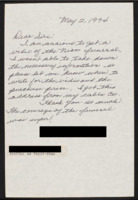 May 2, 1994
Dear Sir:
I am anxious to get a
video of the Nixon funeral.
I wasn't able to take down
the necessary information so
please let me know when to
write for the video and the
purchase price. I got this
address from my cable Co.
Thank you so much
the coverage of the funeral
was super!